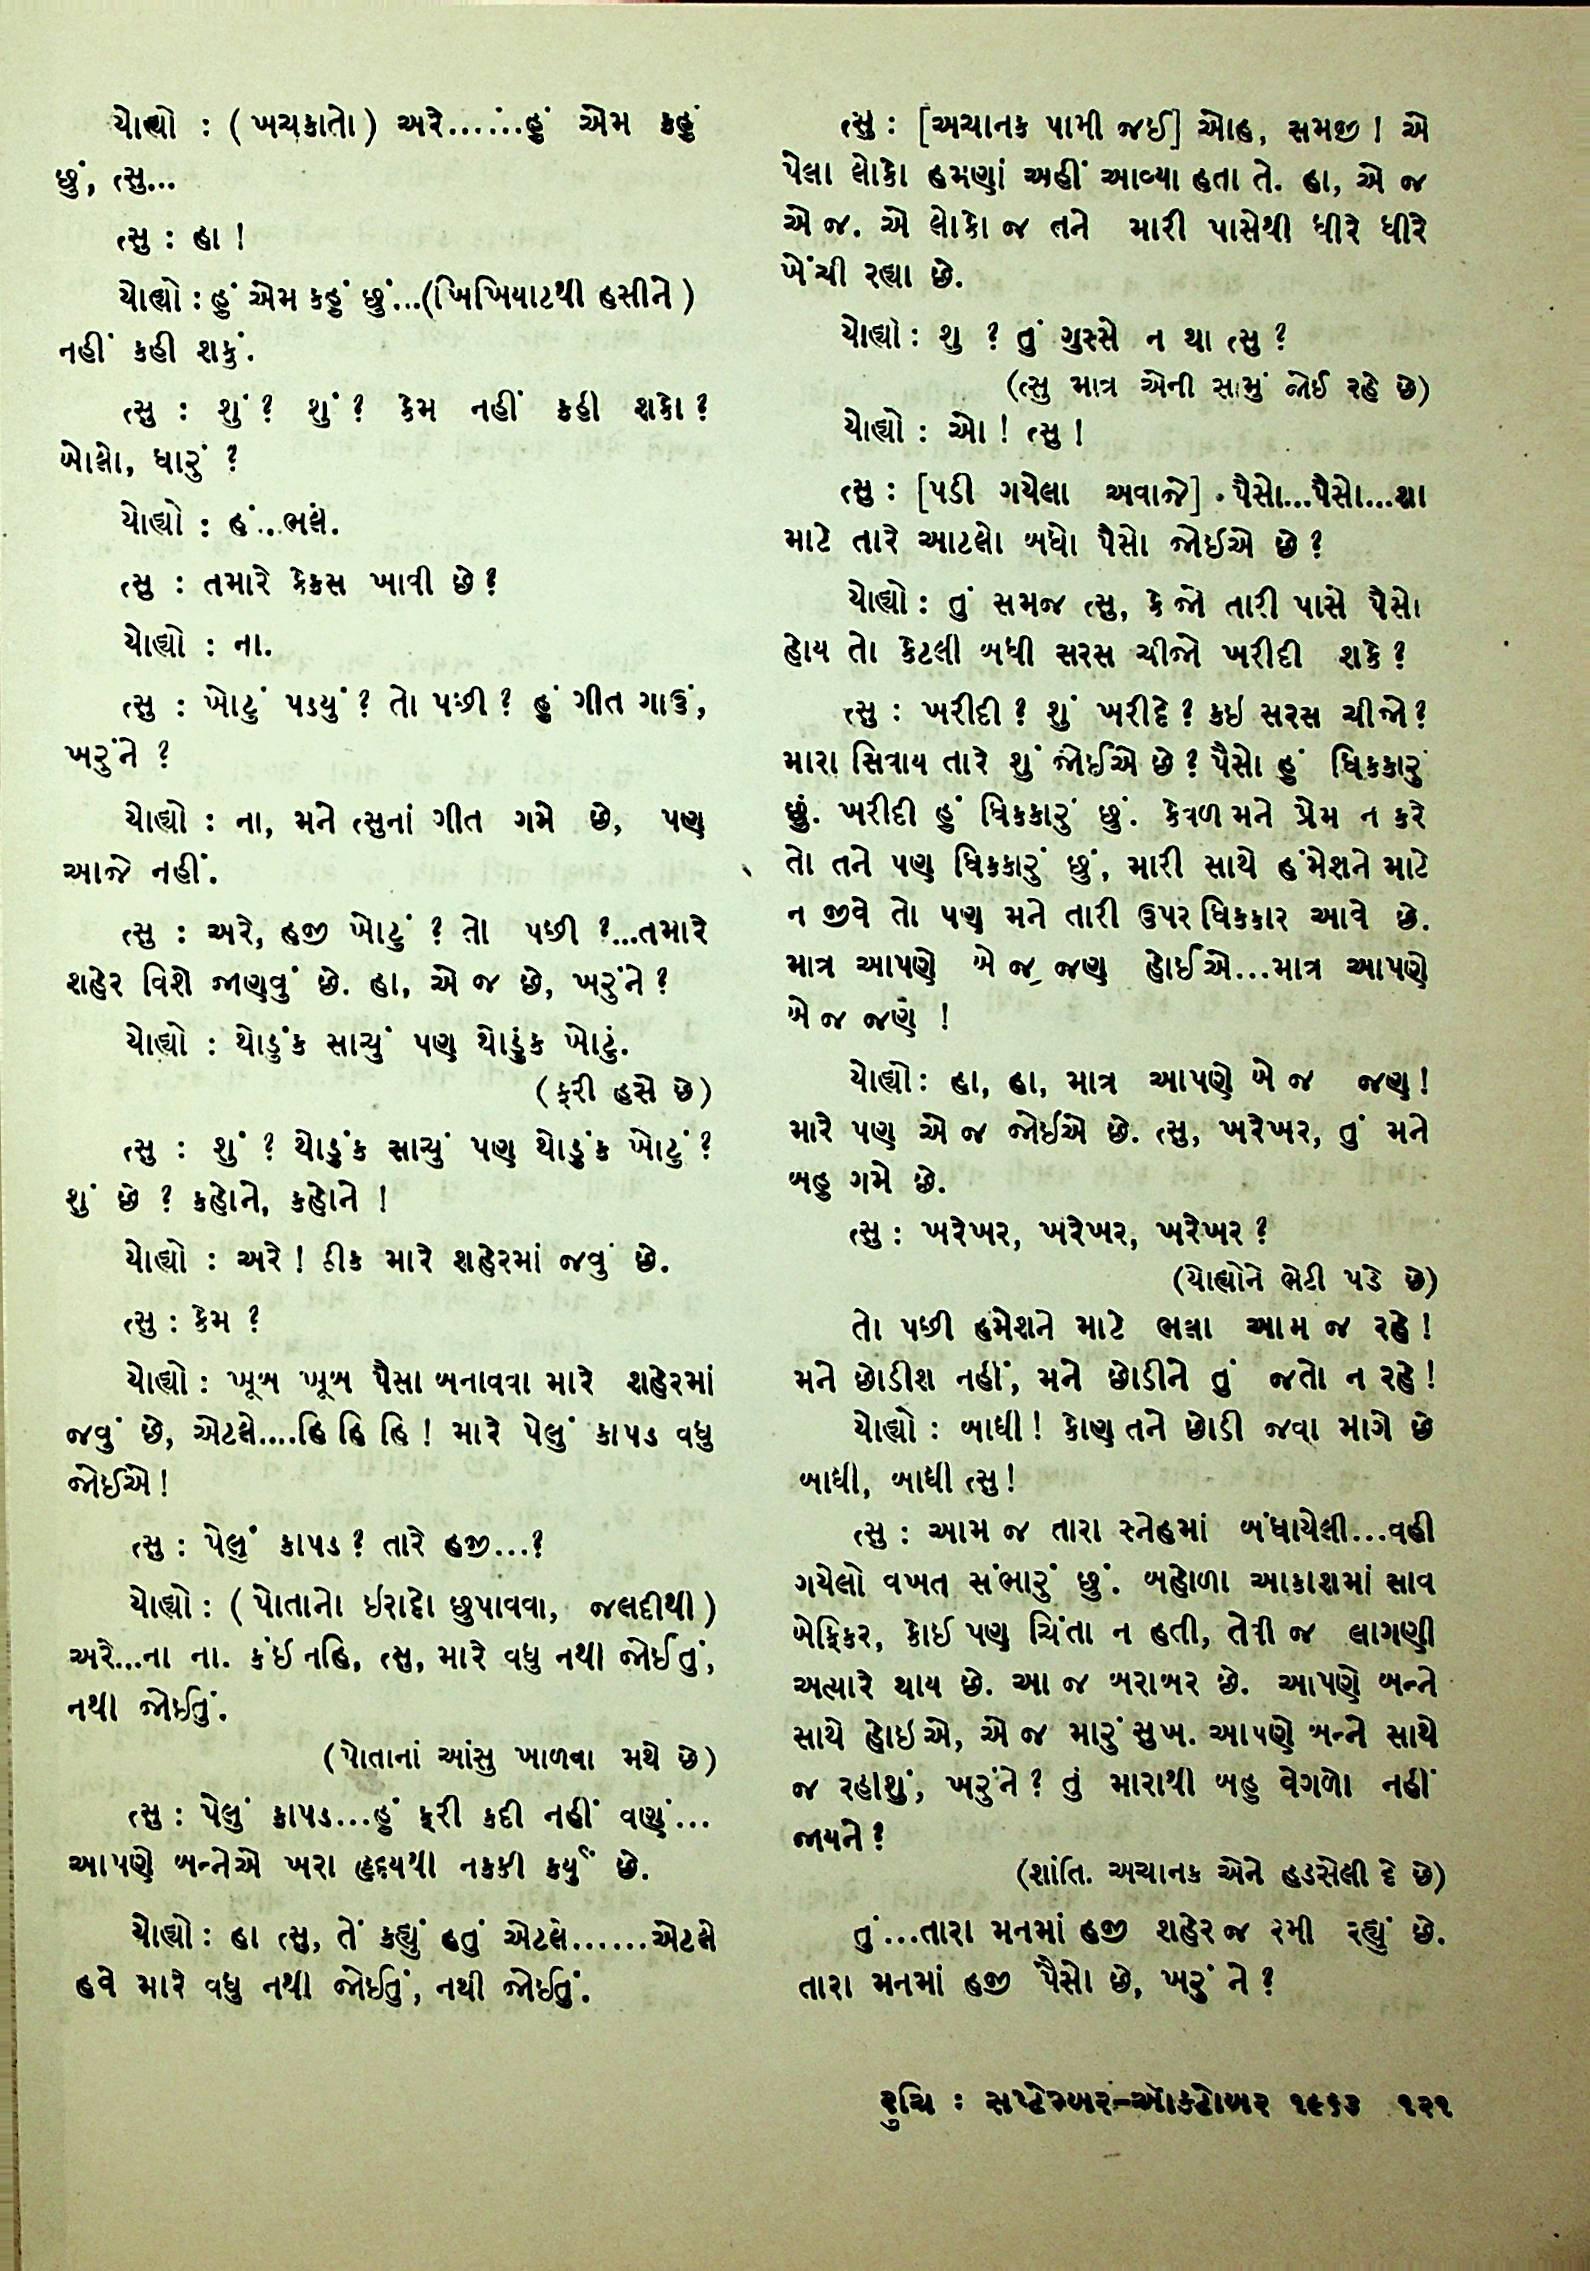 યોહ્યો : (ખચકાતો) અરે......હું એમ કહું
છું, ત્સુ...
ત્સુ : હા !
યોહ્યો : હું એમ કહું છું...(ખિખિયાટથી હસીને)
નહીં કહી શકું.
ત્સુ : શું ? શું ? કેમ નહીં કહી શકો ?
બોલો, ધારું ?
યોહ્યો : હં...ભલે.
ત્સુ : તમારે કેકસ ખાવી છે ?
યોહ્યો : ના.
ત્સુ : ખોટું પડયું ? તો પછી ? હું ગીત ગાઉં,
ખરુંને ?
યોહ્યો : ના, મને ત્સુનાં ગીત ગમે છે, પણ
આજે નહીં.
ત્સુ : અરે, હજી ખોટું ? તો પછી ?...તમારે
શહેર વિશે જાણવું છે. હા, એ જ છે, ખરુંને ?
યોહ્યો : થોડુંક સાચું પણ થોડુંક ખોટું.
(ફરી હસે છે)
ત્સુ : શું ? થોડુંક સાચું પણ થોડુંક ખોટું ?
શું છે ? કહોને, કહોને !
યોહ્યો : અરે ! ઠીક મારે શહેરમાં જવું છે.
ત્સુ : કેમ ?
યોહ્યો : ખૂબ ખૂબ પૈસા બનાવવા મારે શહેરમાં
જવું છે, એટલે....હિ હિ હિ ! મારે પેલું કાપડ વધુ
જોઈએ !
ત્સુ : પેલું કાપડ ? તારે હજી...?
યોહ્યો : (પોતાનો ઇરાદો છુપાવવા, જલદીથી)
અરે...ના ના. કંઈ નહિ, ત્સુ, મારે વધુ નથી જોઈતું,
નથી જોઈતું.
(પોતાનાં આંસુ ખાળવા મથે છે)
ત્સુ : પેલું કાપડ...હું ફરી કદી નહીં વણું...
આપણે બન્નેએ ખરા હૃદયથી નક્કી કર્યું છે.
યોહ્યો : હા ત્સુ, તેં કહ્યું હતું એટલે......એટલે
હવે મારે વધુ નથી જોઈતું, નથી જોઈતું.
ત્સુ : [અચાનક પામી જઈ] ઓહ, સમજી ! એ
પેલા લોકો હમણાં અહીં આવ્યા હતા તે. હા, એ જ
એ જ. એ લોકો જ તને મારી પાસેથી ધીરે ધીરે
ખેંચી રહ્યા છે.
યોહ્યો : શુ ? તું ગુસ્સે ન થા ત્સુ ?
(ત્સુ માત્ર એની સામું જોઈ રહે છે)
યોહ્યો : ઓ ! ત્સુ !
ત્સુ : [પડી ગયેલા અવાજે] પૈસો...પૈસો...શા
માટે તારે આટલો બધો પૈસો જોઈએ છે ?
યોહ્યો : તું સમજ ત્સુ, કે જો તારી પાસે પૈસો
હોય તો કેટલી બધી સરસ ચીજો ખરીદી શકે ?
ત્સુ : ખરીદી ? શું ખરીદે ? કઇ સરસ ચીજો ?
મારા સિવાય તારે શું જોઈએ છે ? પૈસો હું ધિક્કારું
છું. ખરીદી હું ધિક્કારું છું. કેવળ મને પ્રેમ ન કરે
તો તને પણ ધિક્કારું છું, મારી સાથે હંમેશને માટે
ન જીવે તો પણ મને તારી ઉપર ધિક્કાર આવે છે.
માત્ર આપણે બે જ જણ હોઈએ...માત્ર આપણે
બે જ જણ !
યોહ્યો : હા, હા, માત્ર આપણે બે જ જણ !
મારે પણ એ જ જોઈએ છે. ત્સુ, ખરેખર, તું મને
બહુ ગમે છે.
ત્સુ : ખરેખર, ખરેખર, ખરેખર ?
(યોહ્યોને ભેટી પડે છે)
તો પછી હમેશને માટે ભલા આમ જ રહે !
મને છોડીશ નહીં, મને છોડીને તું જતો ન રહે !
યોહ્યો : બાઘી ! કોણ તને છોડી જવા માગે છે
બાઘી, બાઘી ત્સુ !
ત્સુ : આમ જ તારા સ્નેહમાં બંધાયેલી...વહી
ગયેલો વખત સંભારું છું. બહોળા આકાશમાં સાવ
બેફિકર, કોઈ પણ ચિંતા ન હતી, તેવી જ લાગણી
અત્યારે થાય છે. આ જ બરાબર છે. આપણે બન્ને
સાથે હોઇએ, એ જ મારું સુખ. આપણે બન્ને સાથે
જ રહીશું, ખરુંને ? તું મારાથી બહુ વેગળો નહીં
જાયને ?
(શાંતિ. અચાનક એને હડસેલી દે છે)
તું...તારા મનમાં હજી શહેર જ રમી રહ્યું છે.
તારા મનમાં હજી પૈસો છે, ખરું ને ?
રુચિ : સપ્ટેમ્બર–ઑક્ટોબર ૧૯૬૩ ૧૨૧